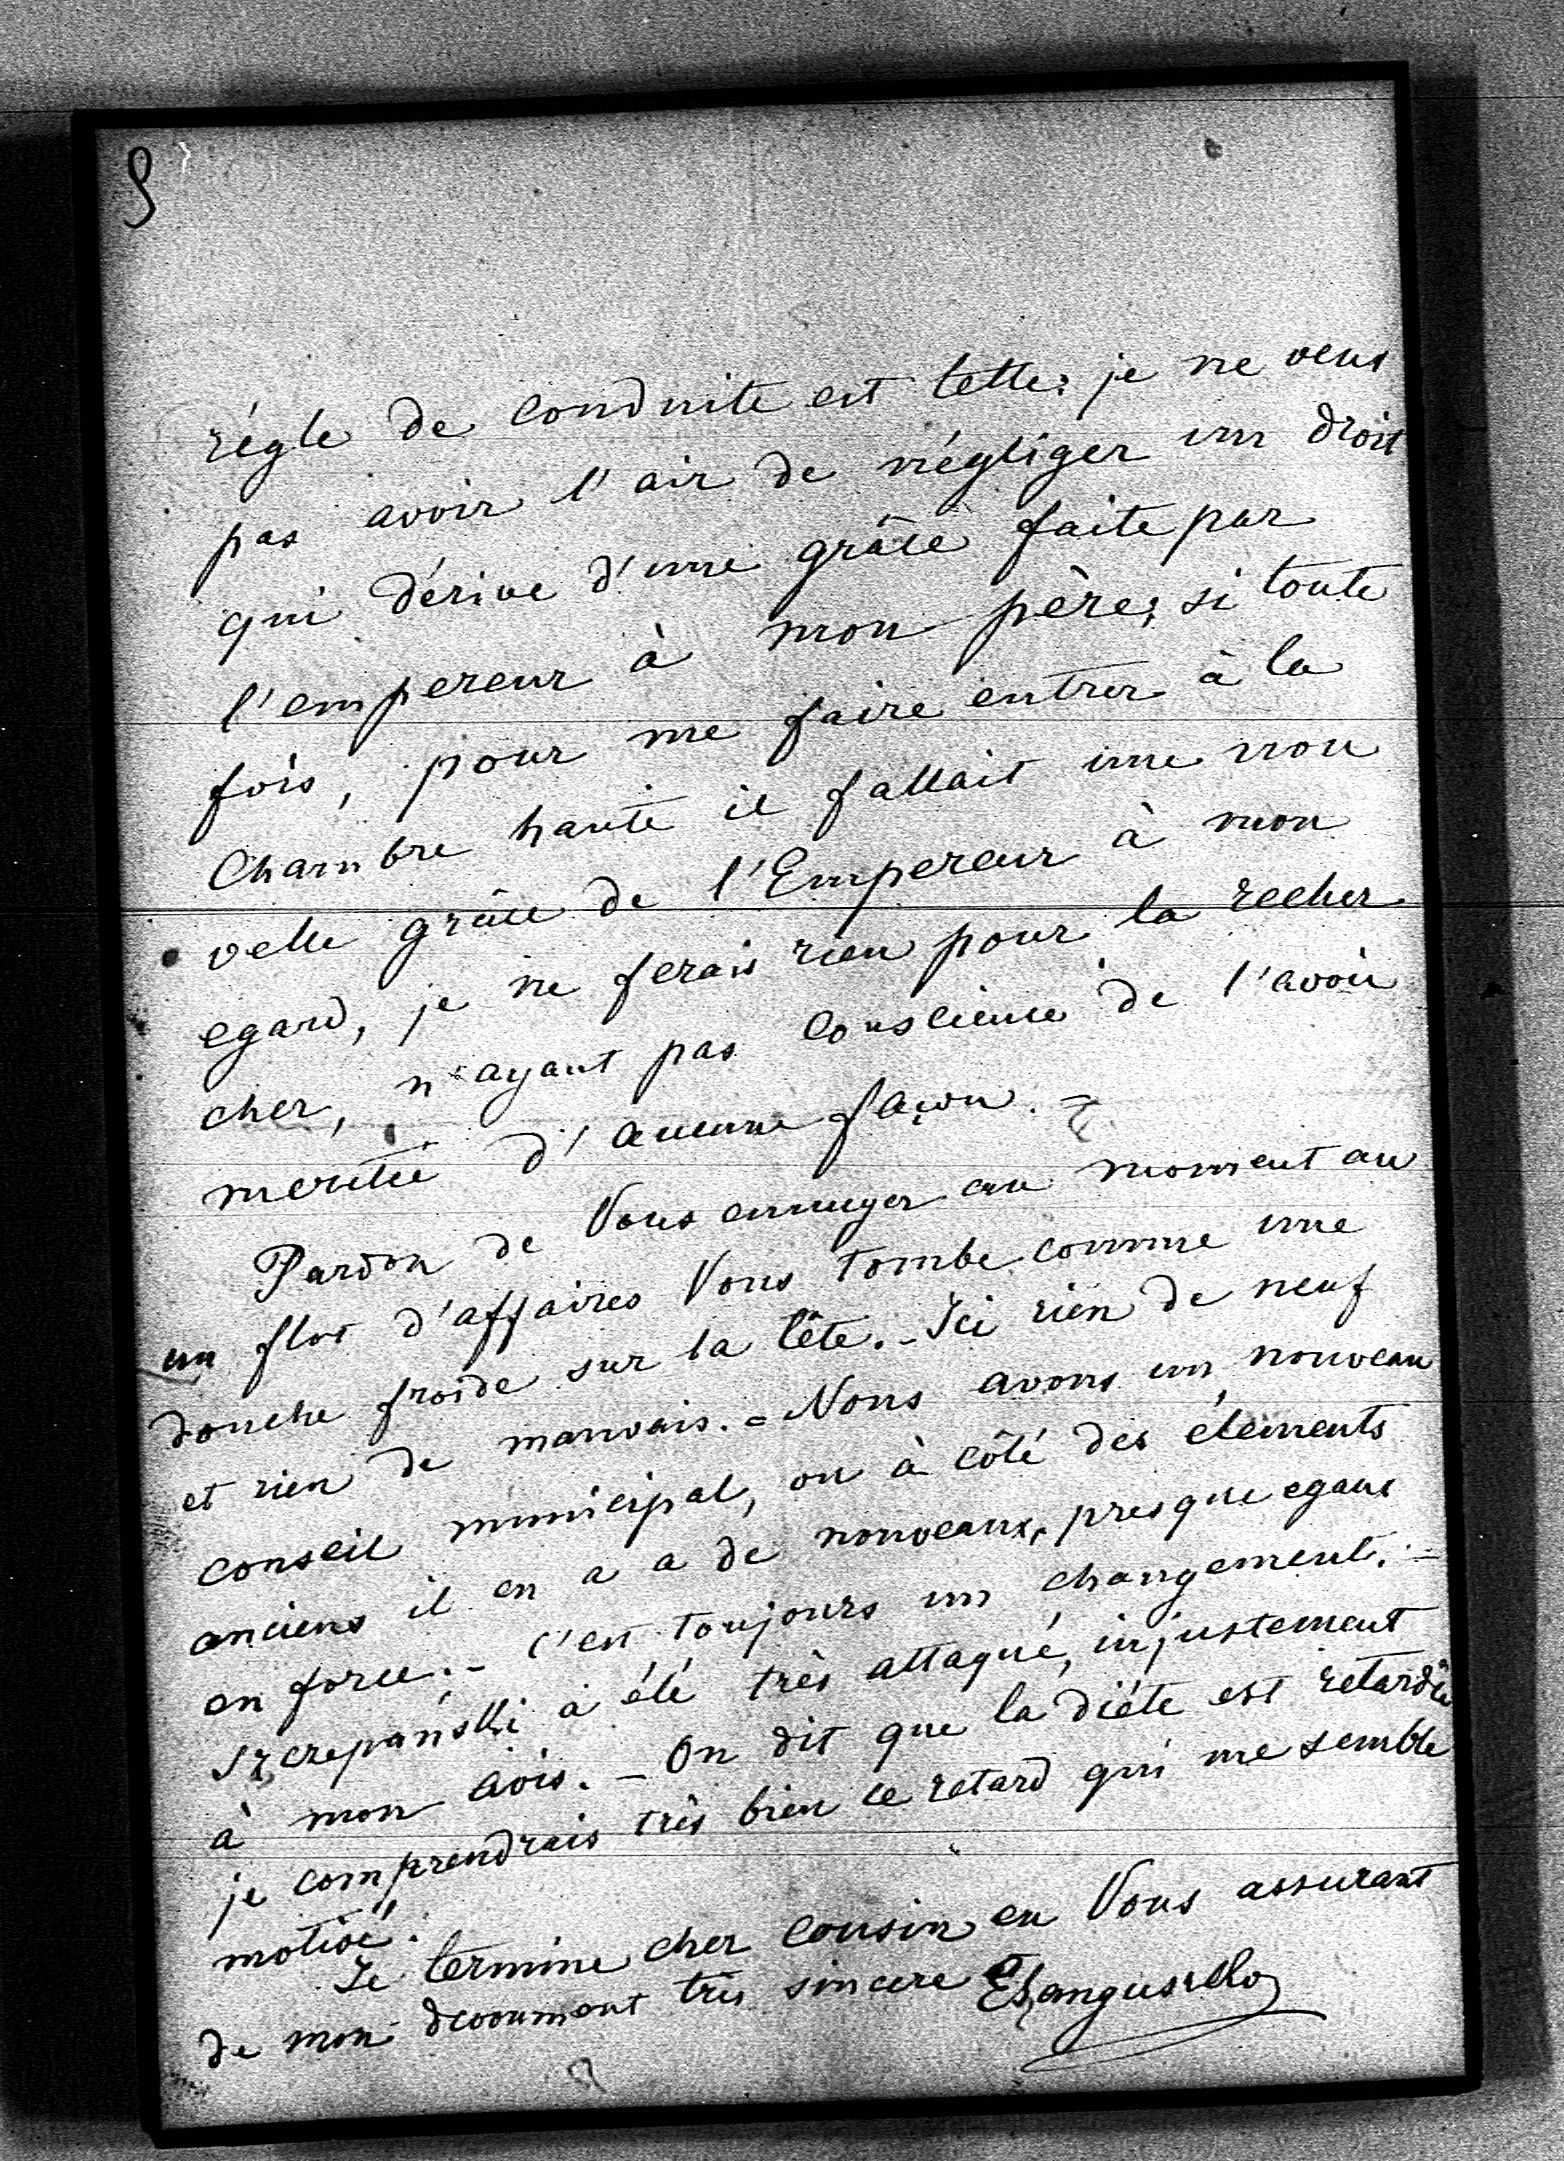 9
régle de conduite est telle: je ne veux
pas avoir l'air de négliger un droit
qui dérive d'une grâce faite par
l'empereur à mon père; si toute
fois, pour me faire entrer à la
Chambre haute il fallait une nou
velle grâce de l'Empereur à mon
egard, je ne ferais rien pour la recher
cher, n'ayant pas conscience de l'avoir
meritée d'aucune façon. –
Pardon de Vous ennuyer au moment ou
un flot d'affaires Vous tombe comme une
douche froide sur la tête. – Ici rien de neuf
et rien de mauvais. – Nous avons un nouveau
conseil municipal, ou à côté des éléments
anciens il en a a de nouveaux, presque egaux
en force. – c'est toujours un changement. –
Szczepański à été très attaqué, injustement
à mon avis. – On dit que la diéte est retardée
je comprendrais très bien ce retard qui me semble
motivé.
Je termine cher cousin en Vous assurant
de mon devoument très sincere ESanguszko